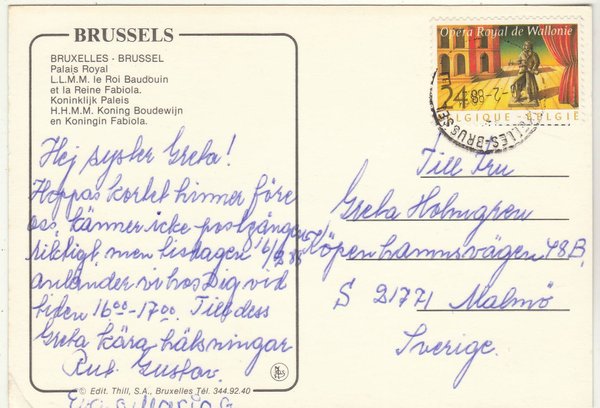 BRUSSELS
BRUXELLES - BRUSSEL
Palais Royal
L.L.M.M. le Roi Baudouin
et la Reine Fabiola.
Koninklijk Paleis
H.H.M.M. Koning Boudewijn
en Koningin Fabiola.
Hej syster Greta!
Hoppas kortet hinner före
oss, känner icke postgången
riktigt men tisdagen
anländer vi hos Dig vid
tiden 16⁰⁰-17⁰⁰. Till dess
Greta kära hälsningar
Rut. Gustav.
© Edit. Thill, S.A., Bruxelles Tél. 344.92.40
Opéra Royal de Wallonie
24
BELGIQUE BELGIE
Till Fru
Greta Holmgren
Köpenhamnsvägen 48B
S 21771 Malmö
Sverige.